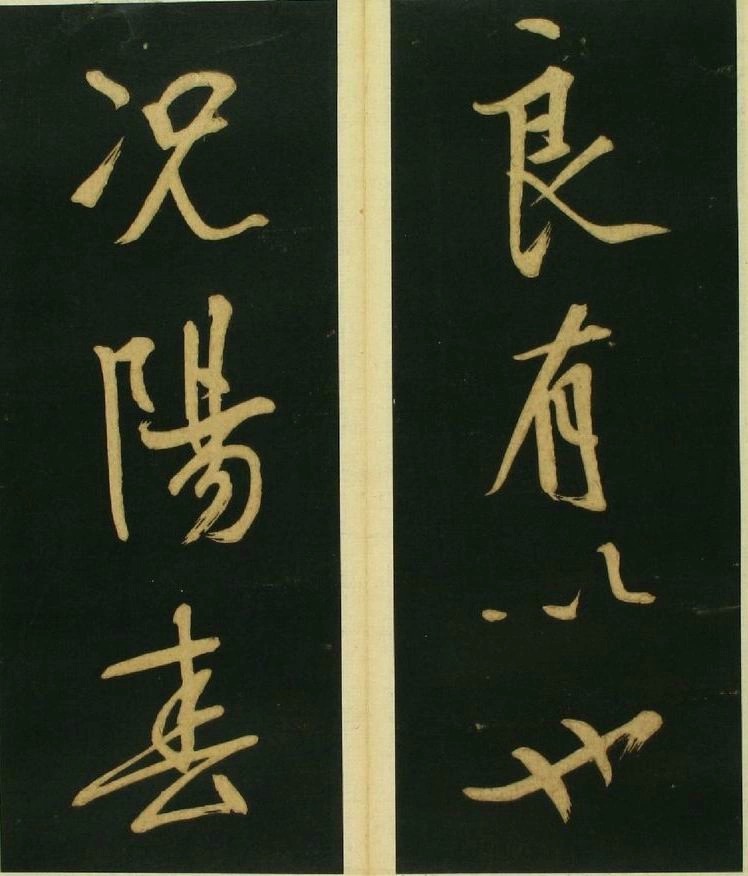 良有以也
況陽春